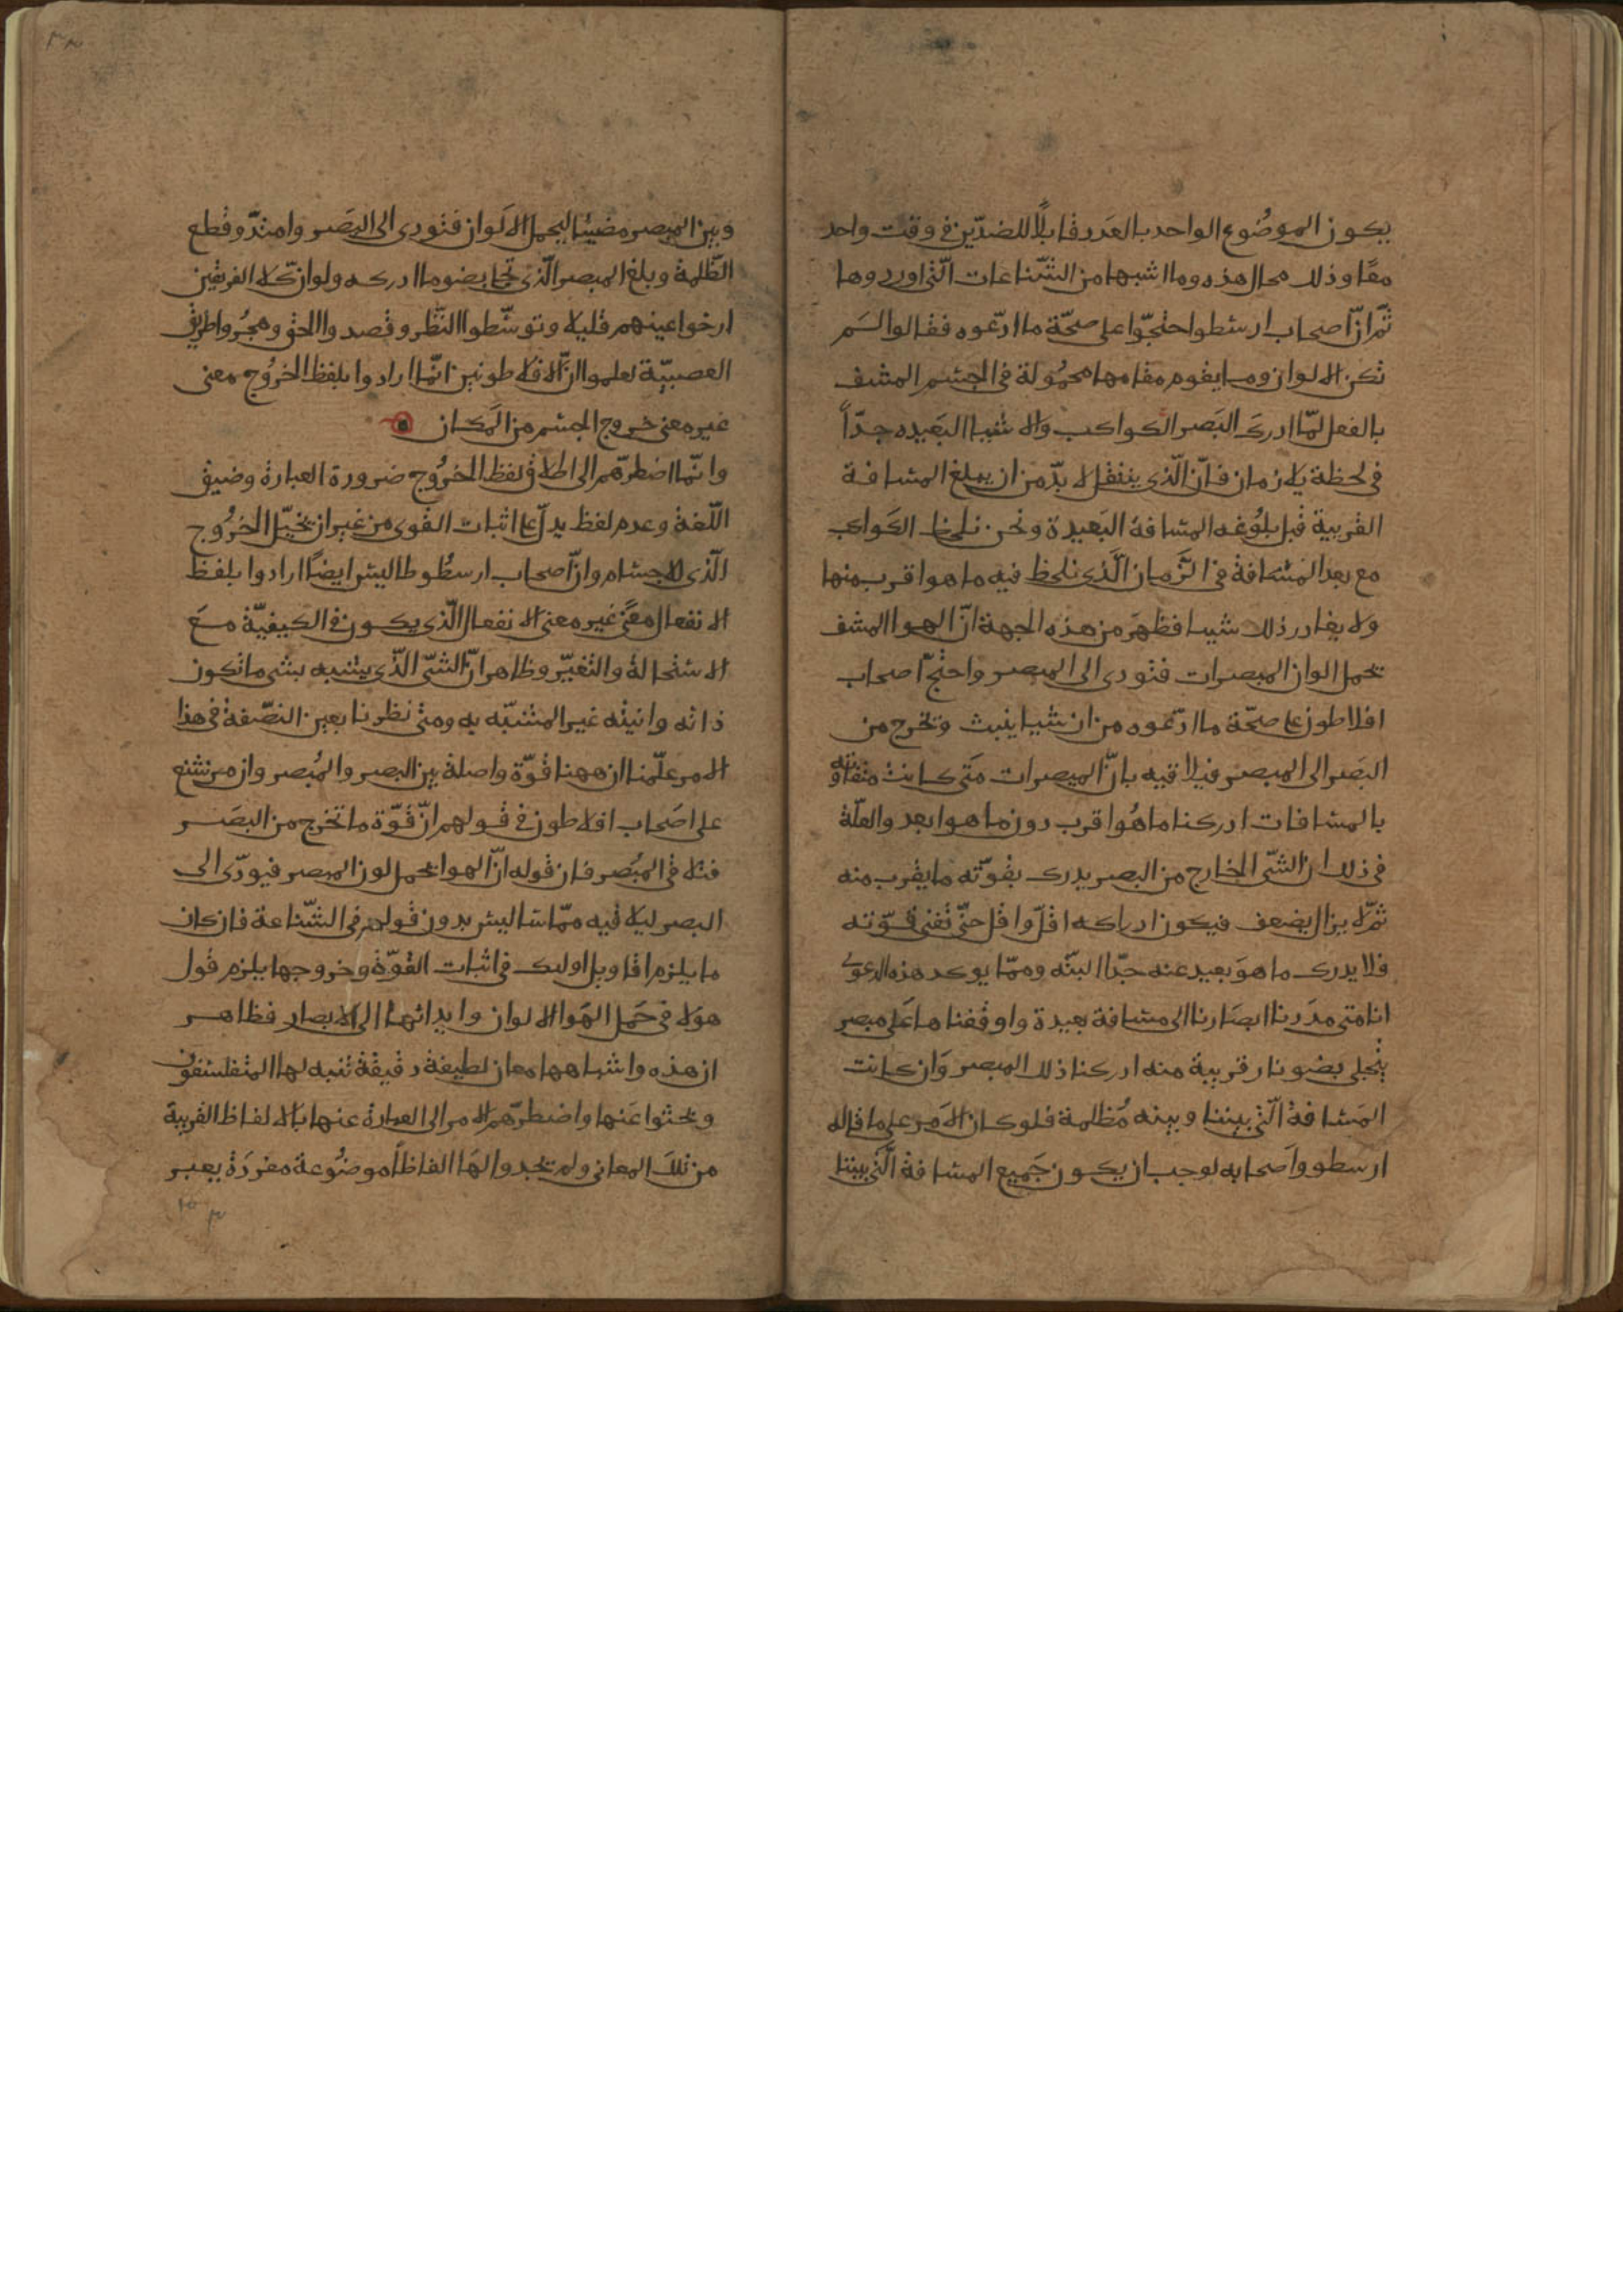 يكون الموضُوع الواحد بالعَدد قابلًا للضدّين فى وقت واحد
معًا وذلك محال هذه وما اشبهها من الشّناعات الّتى اوردوها
ثمّ انّ اصحاب ارسطو احتجّوا على صحّة ما ادّعوه فقالوا لسَم
تكن الالوان وما يقوم مقامها محمُولة فى الجسم المشف
بالفعل لمّا ادرك البَصر الكواكب والاشيا البَعيده جدّاً
فى لحظة بلا زمان فانّ الّذى ينتقل لا بدّ من ان يبلغ المسافة
القريبة قبل بلُوغه المسافة البَعيدة ونحن نلحظ الكواكب
مع بعد المسَافة فى الزَّمان الَّذى نلحظ فيه ما هو اقرب منها
ولا يغادر ذلك شيا فظهَر من هذه الجهة انّ الهوا المشف
يحمل الوان المبصرات فتودى الى المبصر واحتجّ اصحاب
افلاطون على صحّة ما ادّعوه من ان شيا ينبث وتخرج من
البَصر الى المبصر فيلاقيه بانّ المبصرات متَى كانت متفاوته
بالمسافات ادركنا ما هُو اقرب دون ما هو ابعد والعلّة
فى ذلك ان الشّى الخارج من البصر يدرك بقوّته ما يقرب منه
ثمّ لا يزال يضعف فيكون ادراكه اقلّ واقل حتّى تفنى قوّته
فلا يدرك ما هوَ بعيد عنه جدّا البتّه وممّا يوكد هذه الدعوى
انا متى مدَدنا ابصَارنا الى مسافة بعيدة واوقفنا ها عَلى مبصر
يتجلى بضو نار قريبة منه ادركنا ذلك المبصر وَان كانت
المَسافة الّتى بيننا وبينه مُظلمة فلو كان الامَر على ما قاله
ارسطو واَصحابه لوجب ان يكون جَميع المسافة الَّتى بيننا
وبين المبصر مضيئا ليحمل الالَوان فتودى الى البَصَر وامتدّ وقطع
الظّلمة وبلغ المبصر الّذى تجلى بضو ما ادركه ولو انّ كلا الفريقين
ارخوا اعينهم قليلا وتوسّطوا النَّظر وقصدوا الحق وهجرُوا طريق
العصبيّة لعلموا انّ الافلاطونيين انّما ارادوا بلفظ الخروُج معنى
غير معنى خروج الجسم من المَكان
وانّما اضطرّهم الى اطلاق لفظ الخرُوج ضرورة العبارة وضيق
اللّغة وعدم لفظ يدلّ على اثبات القوى من غير ان يخيّل الخرُوج
الّذى للاجسام وانّ اصحاب ارسطُوطاليس ايضًا ارادوا بلفظ
الانفعال معنًى غير معنى الانفعال الّذى يكون فى الكيفيّة مع
الاستحالة والتغيّر وظاهر انّ الشّى الّذى يشبه بشى ما تكون
ذاته وانيته غير المشبّه به ومتى نظرنا بعين النصّفة فى هذا
الامر علّمنا ان ههنا قوّة واصلة بين البصر والمُبصر وان من شنع
على اصَحاب افلاطون فى قولهم انّ قوّة ما تخرج من البصَر
فتلاقى المُبصَر فان قوله انّ الهوا يحمل لون المبصر فيودّى الى
البصر ليلاقيه ممّاسّا ليس بدون قولهم فى الشّناعة فان كان
ما يلزم اقاويل اوليك فى اثبات القوّة وخروجها يلزم قول
هولا فى حَمل الهَوا الالوان وايدائها الى الابصار فظاهر
ان هذه واشباهها معان لطيفة دقيقة تنبه لها المتفلسفون
وبحثوا عَنها واضطرّهم الامر الى العبارة عنها بَالالفاظ القريبة
من تلكَ المعانى ولم يجدوا لهَا الفاظًا موضُوعة مفردَة يعبر